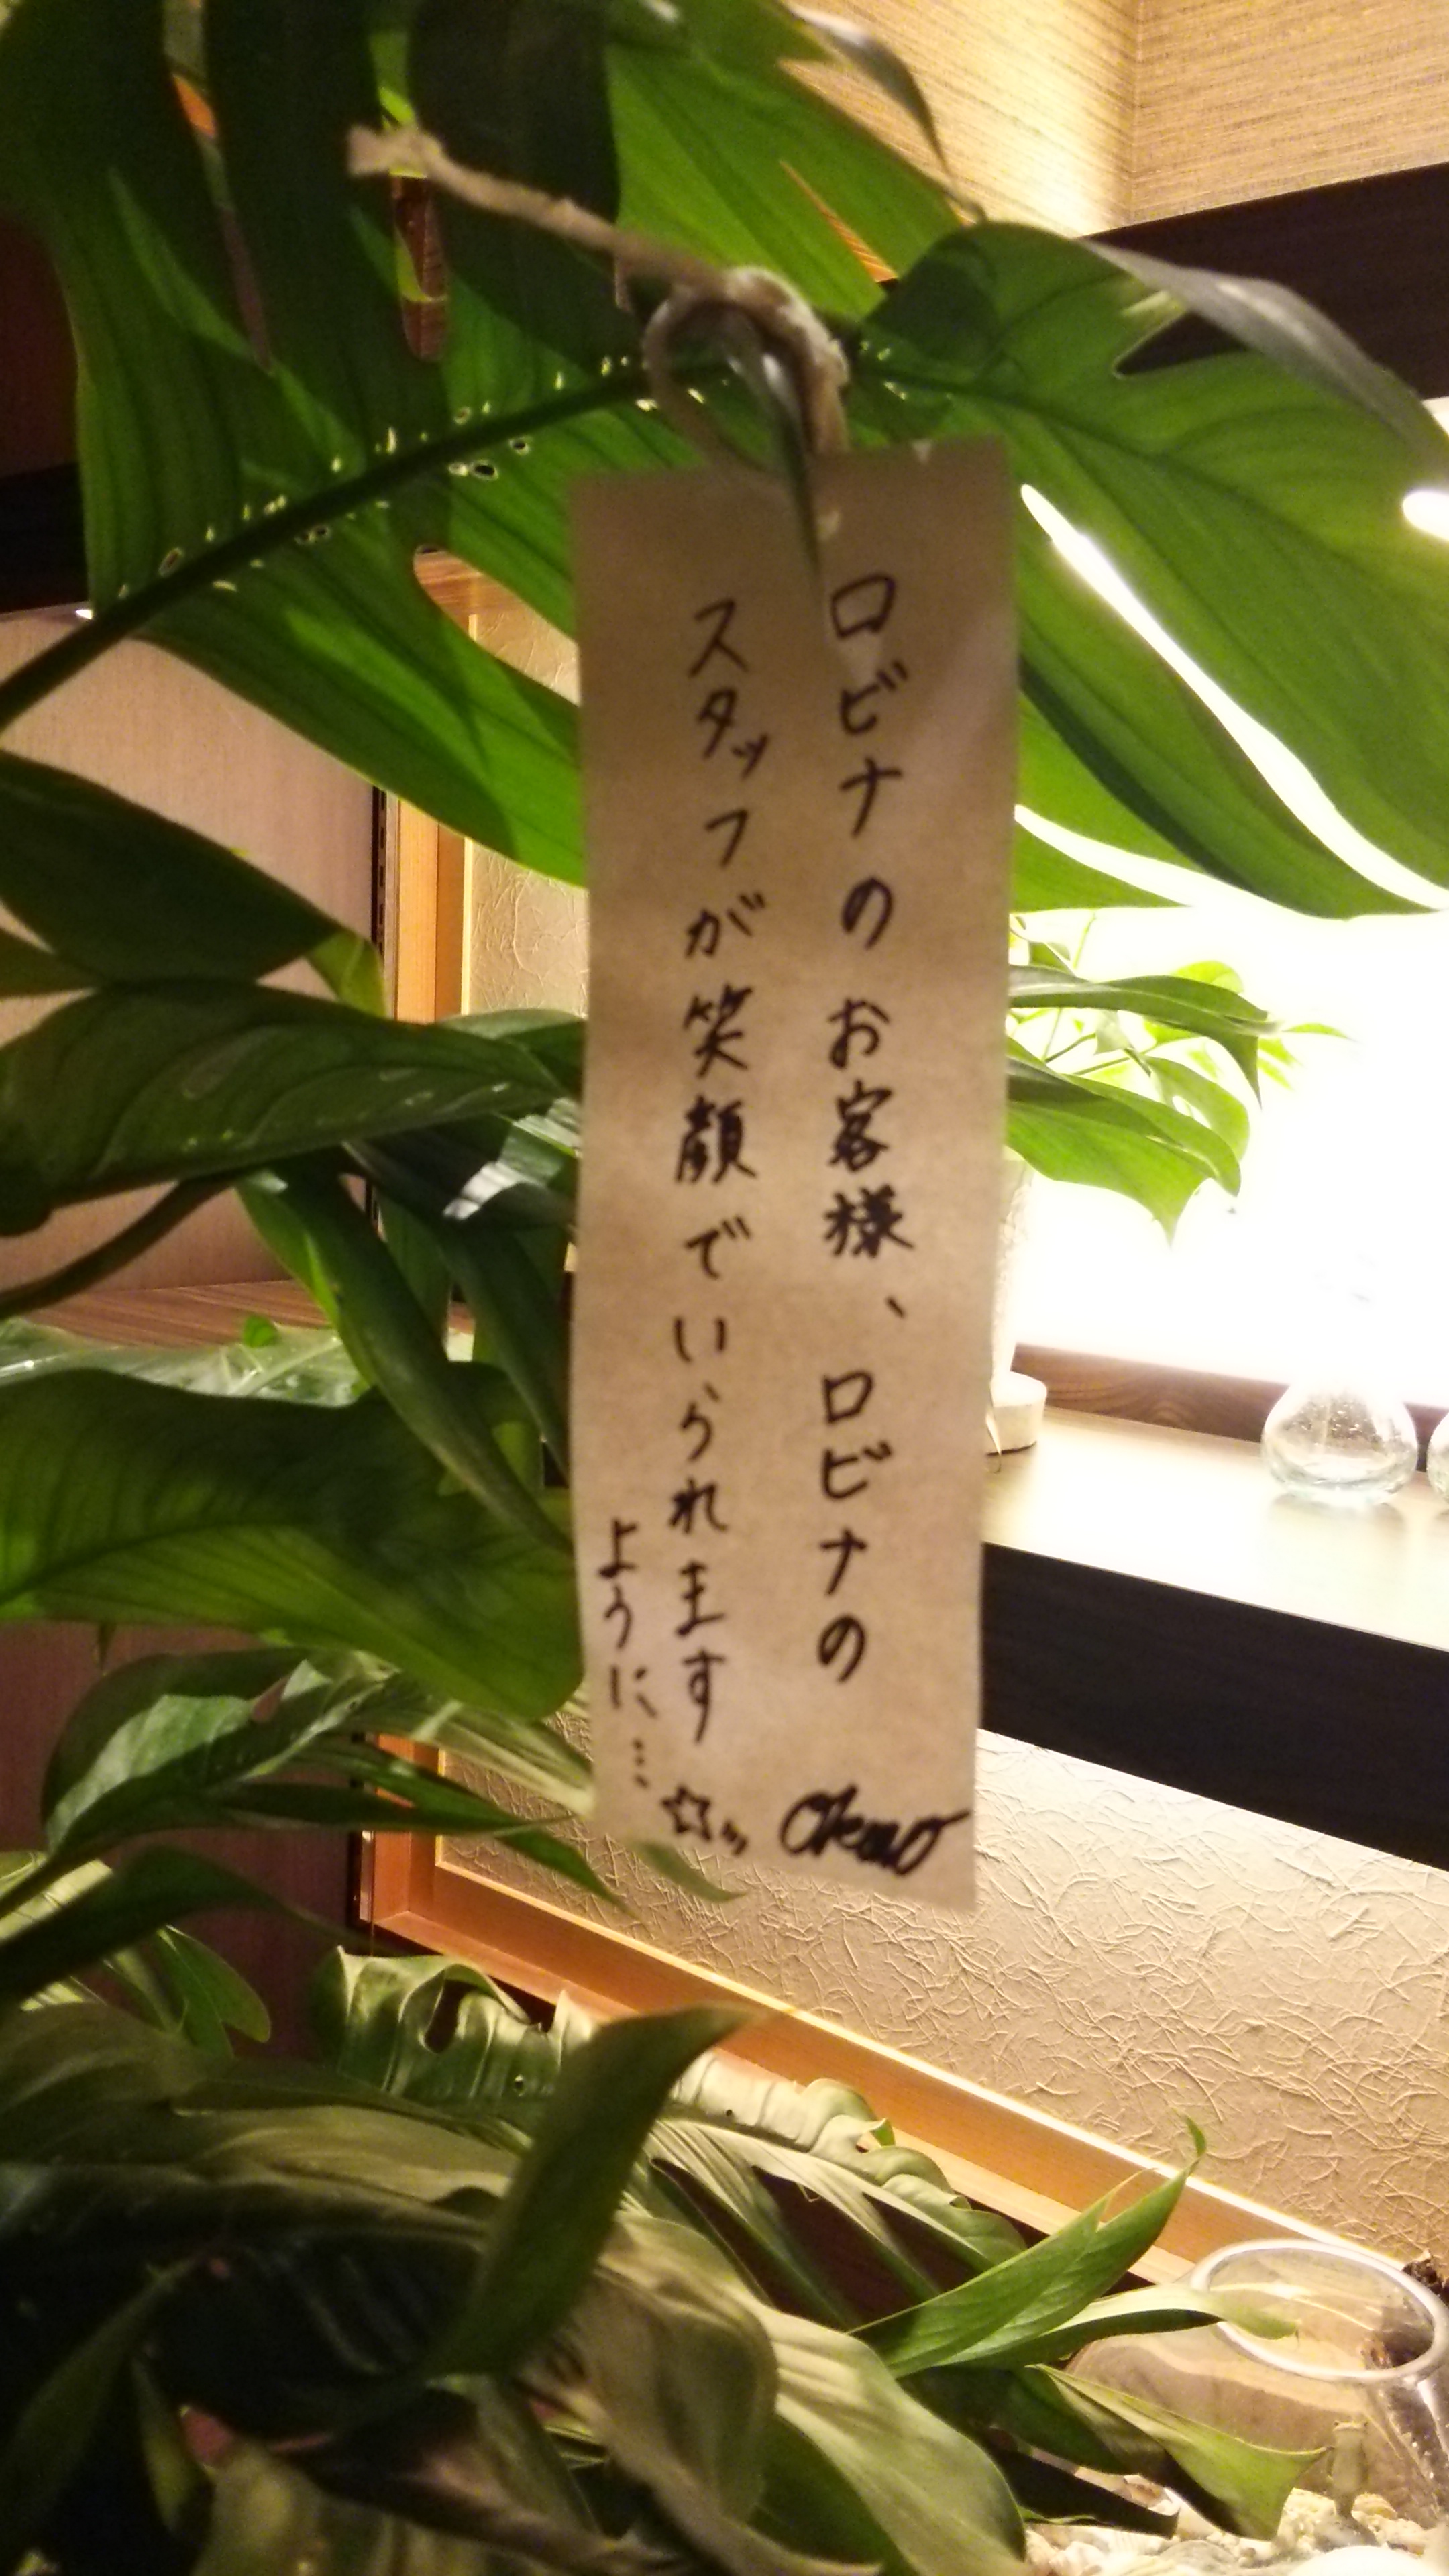 ロビナのお客様、ロビナの
スタッフが笑顔でいられます
ように…
☆ッ